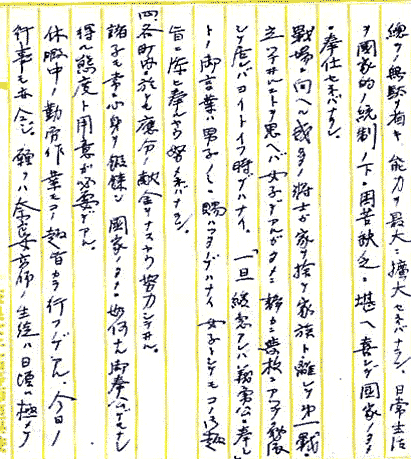 総ゆる無駄を省キ能力ヲ最大ニ擴大セネバナラン。日常生活
ヲ國家的ノ統制ノ下ニ困苦缺乏ニ堪ヘ喜ンデ國家ノタメ
ニ奉仕セネバナラン。
戰場ニ向ヘル我ガ将士ガ家ヲ捨テ家族ト離レテ第一戰ニ
立ツテ居ルコトヲ思ヘバ女子デアルガタメニ静カニ
シテ居レバヨイトイフ時デハナイ。「一旦緩急アレバ義勇公ニ奉シ
トノ御言葉ハ男子ノミニ賜ハツタノデハナイ女子トシテモコノ御趣
旨ニ添ヒ奉ルヤウ努メネバナラン。
町内ノ方モ應分ノ献金ヲナスヤウ努力シテ居ル。
諸子モ常ニ心身ヲ鍛錬シ國家ノタメニ如何ナル御奉公デモナシ
得ル態度ト用意ガ必要デアル。
休暇中ノ勤労作業モコノ趣旨カラ行フノデアル。今日ノ
行事モ亦然シ。願クハ奈良高師ノ生徒ハ日頃ニ極メテ